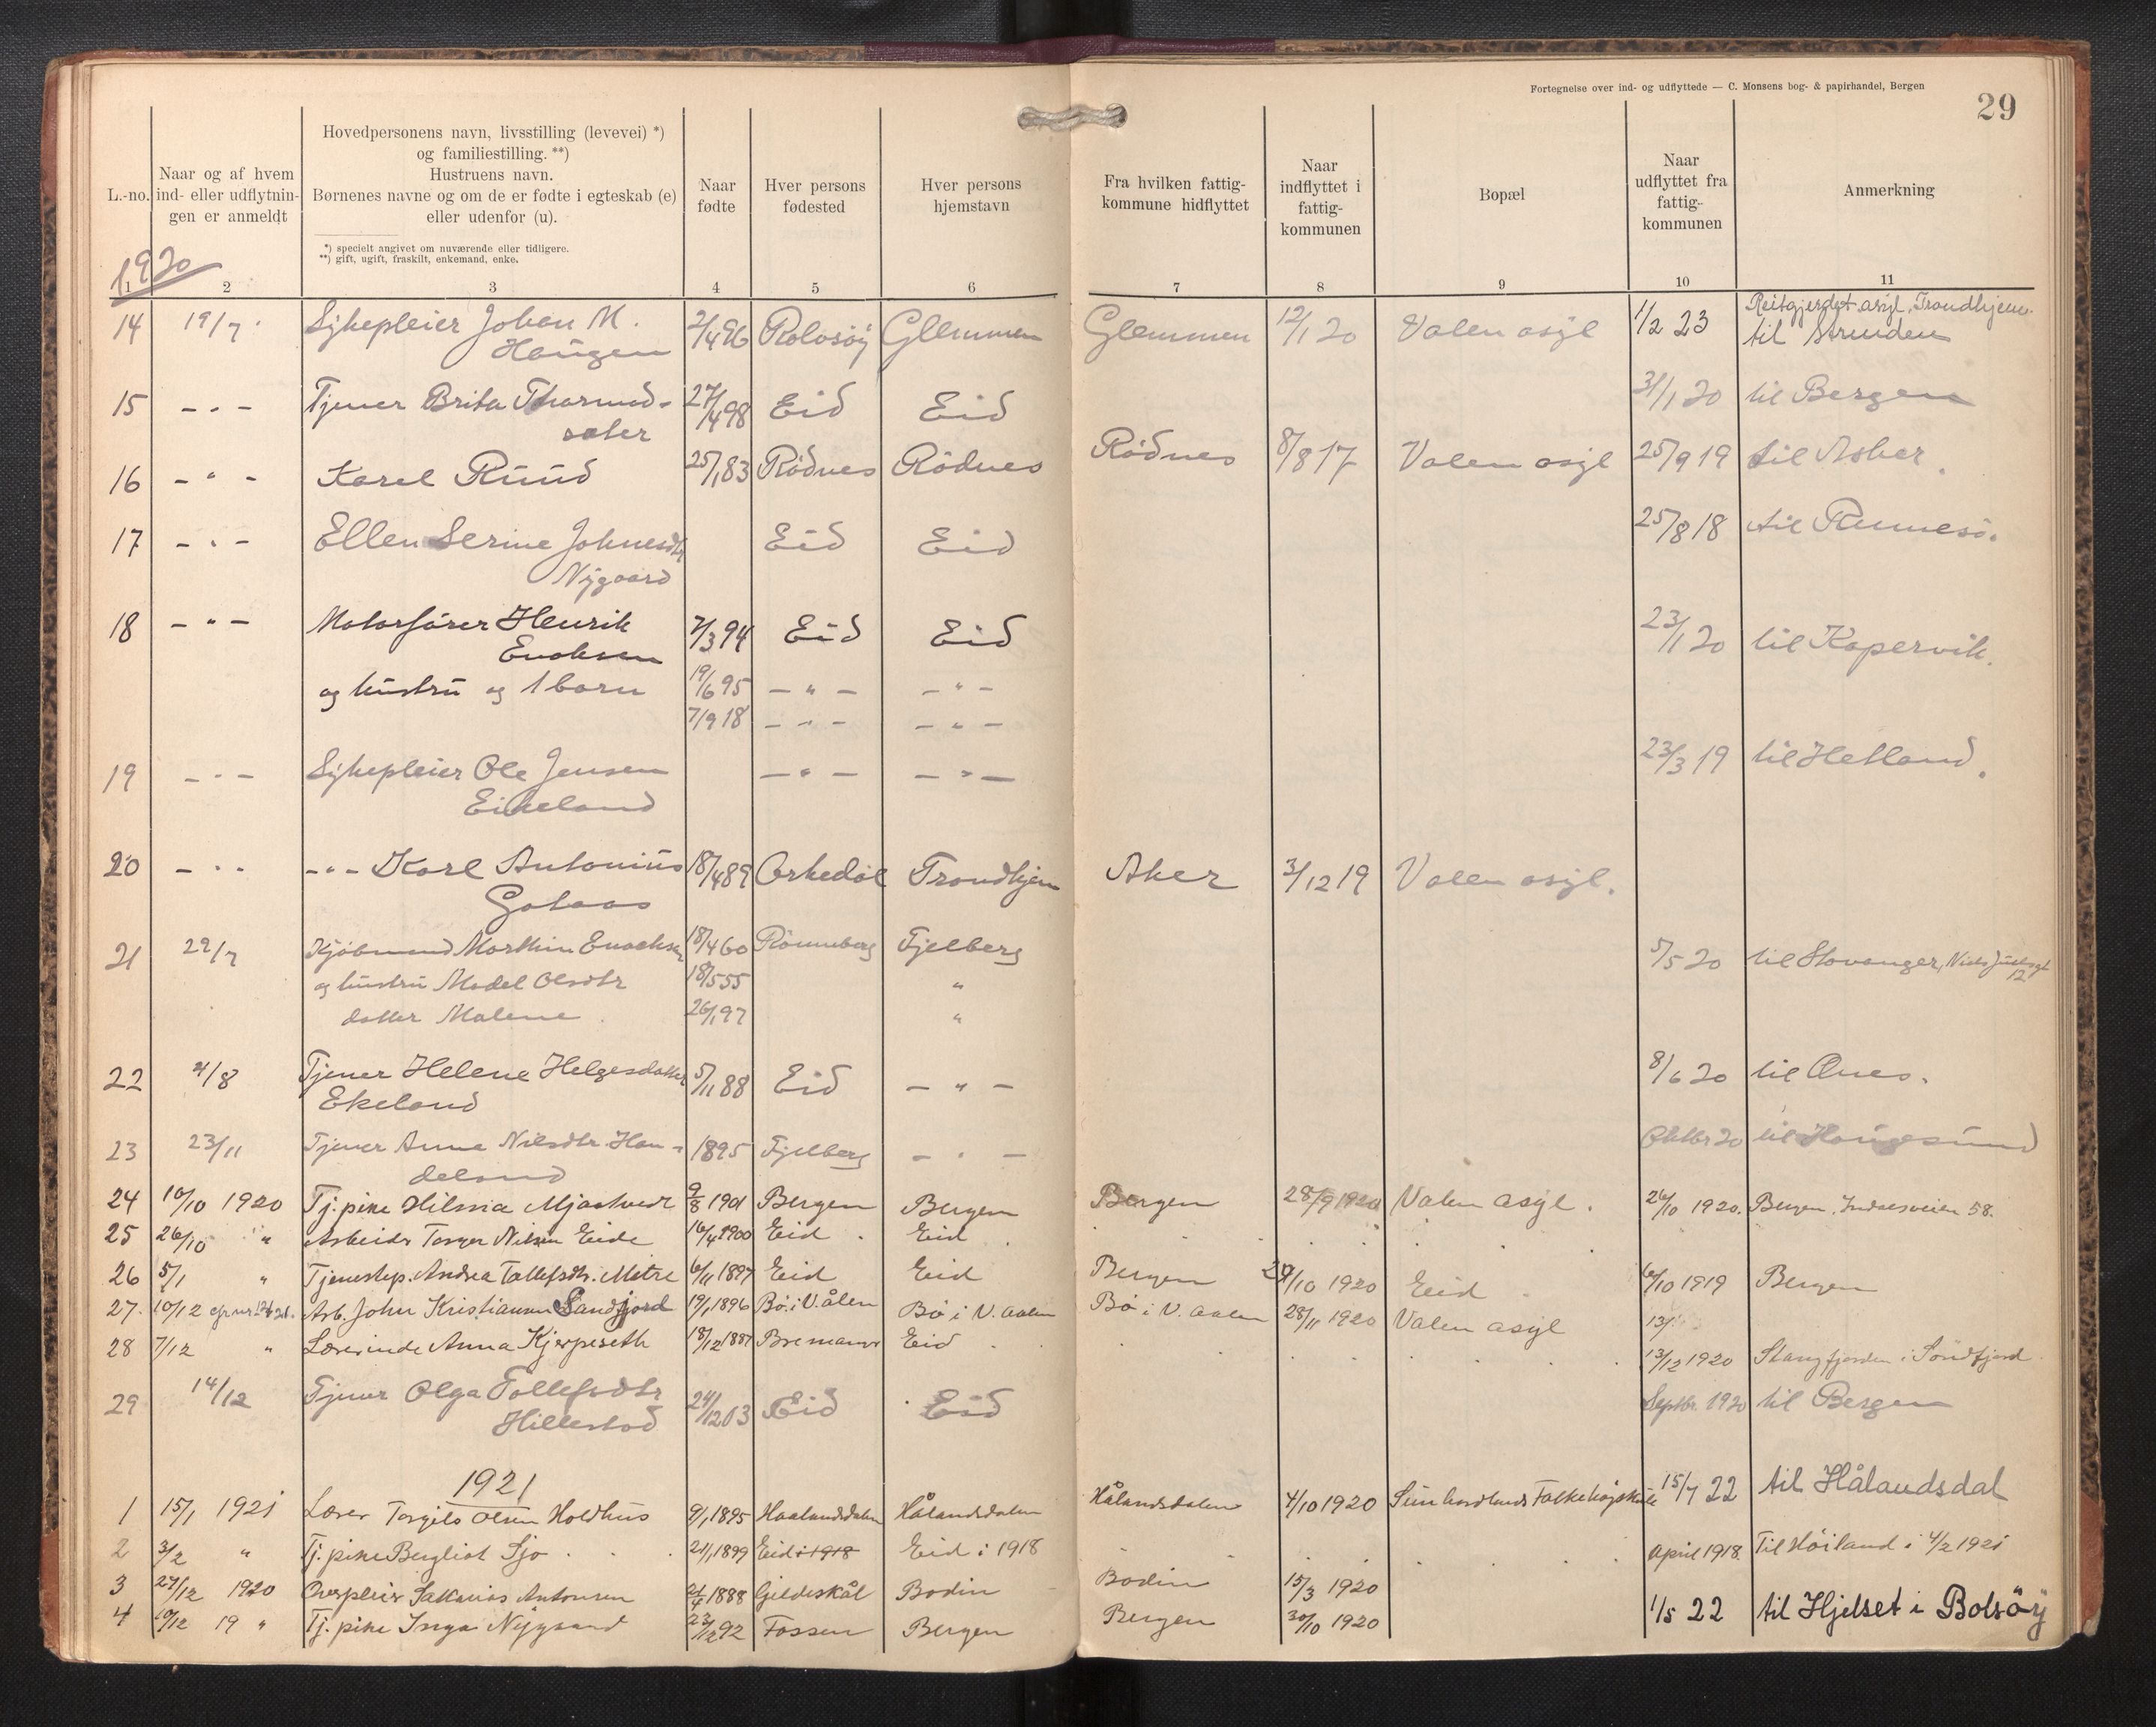 Fortegnelse over ind- og udflyttede — C. Monsens bog- & papirhandel, Bergen
29
L.-no.
Naar og af hvem
ind- eller udflytnin-
gen er anmeldt
Hovedpersonens navn, livsstilling (levevei) *)
og familiestilling. **)
Hustruens navn.
Børnenes navne og om de er fødte i egteskab (e)
eller udenfor (u).
*) specielt angivet om nuværende eller tidligere.
**) gift, ugift, fraskilt, enkemand, enke.
Naar
fødte
Hver persons
fødested
Hver persons
hjemstavn
Fra hvilken fattig-
kommune hidflyttet
Naar
indflyttet i
fattig-
kommunen
Bopæl
Naar
udflyttet fra
fattig-
kommunen
Anmerkning
1920
1 2 3 4 5 6 7 8 9 10 11
14 19/7 Sykepleier Johan M. 2/4 96 Rolvsøy Glemmen Glemmen 12/1 20 Valen asyl 1/2 23 Reitgjerdet asyl, Trondhjem.
Haugen til Strinden
15 - " - Tjener Brita Thormod- 27/4 98 Eid Eid 31/1 20 til Bergen
sæter
16 - " - Karel Ruud 25/1 83 Rödnes Rödnes Rödnes 8/8 17 Valen asyl 25/9 19 til Asker
17 - " - Ellen Serine Johnesdtr Eid Eid 25/8 18 til Rennesö.
Nygaard
18 - " - Motorförer Henrik 7/3 94 Eid Eid 23/1 20 til Kopervik.
Enoksen
og hustru og 1 barn 19/6 95 - " - - " -
7/9 18 - " - - " -
19 - " - Sykepleier Ole Jensen - " - - " - 23/3 19 til Hetland.
Eikeland
20 - " - - " - Karl Antonius 18/4 89 Orkedal Trondhjem Aker 3/12 19 Valen asyl.
Gataas
21 29/7 Kjöbmand Marthin Enochsen 18/4 60 Rönneberg Fjelberg 5/5 20 til Stavanger, Niels Juelsgt
12
og hustru Madel Olsdtr 18/5 55 "
datter Malene 26/1 97 "
22 4/8 Tjener Helene Helgesdatter 5/11 88 Eid - " - 8/6 20 til Ænes.
Ekeland
23 23/11 Tjener Anna Nilsdtr. Han- 1895 Fjelberg - " - Oktbr 20 til Haugesund
deland
24 10/10 1920 Tj. pike Hilma Mjaatvedt 9/8 1901 Bergen Bergen Bergen 28/9 1920 Valen asyl. 26/10 1920. Bergen, Indalsveien 58.
25 26/10 " Arbeider Torger Nilsen Eide 16/4 1900 Eid Eid
26 5/1 " Tjenestep. Andrea Tollefsdtr. Matre 6/11 1897 Eid Eid Bergen 29/10 1920 Eid 6/10 1919 Bergen
27. 10/12 Arb. John Kristiansen Sandfjord 19/1 1896 Bö. i V. ålen Bö i V. Aalen Bö i V. Aalen 28/11 1920 Valen asyl 13/
28 7/12 " Lærerinde Anna Kjerpeseth 18/12 1887 Bremanger Eid 13/12 1920 Stangfjorden i Söndfjord
29 14/12 Tjener Olga Tollefsdtr 24/12 03 Eid Eid Septbr. 1920 til Bergen
Hillestad
1921
1 15/1 1921 Lærer Torgils Olsen Holdhus 9/1 1895 Haalandsdalen Hålandsdalen Hålandsdalen 4/10 1920 Sunhordlands Folkehöjskule 15/7 22 til Hålandsdal
2 3/2 " Tj. pike Bergliot Sjo 21/1 1899 Eid i 1918 Eid i 1918 april 1918. Til Höiland i 4/2 1921
3 27/12 1920 Overpleier Sakarias Antonsen 1888 Gildeskål Bodin Bodin 15/3 1920
4 10/12 19 " Tj. pike Inga Nygaard 23/12 92 Fossen Bergen Bergen 30/10 1920 1/5 22 til Hjelset i Bolsöy